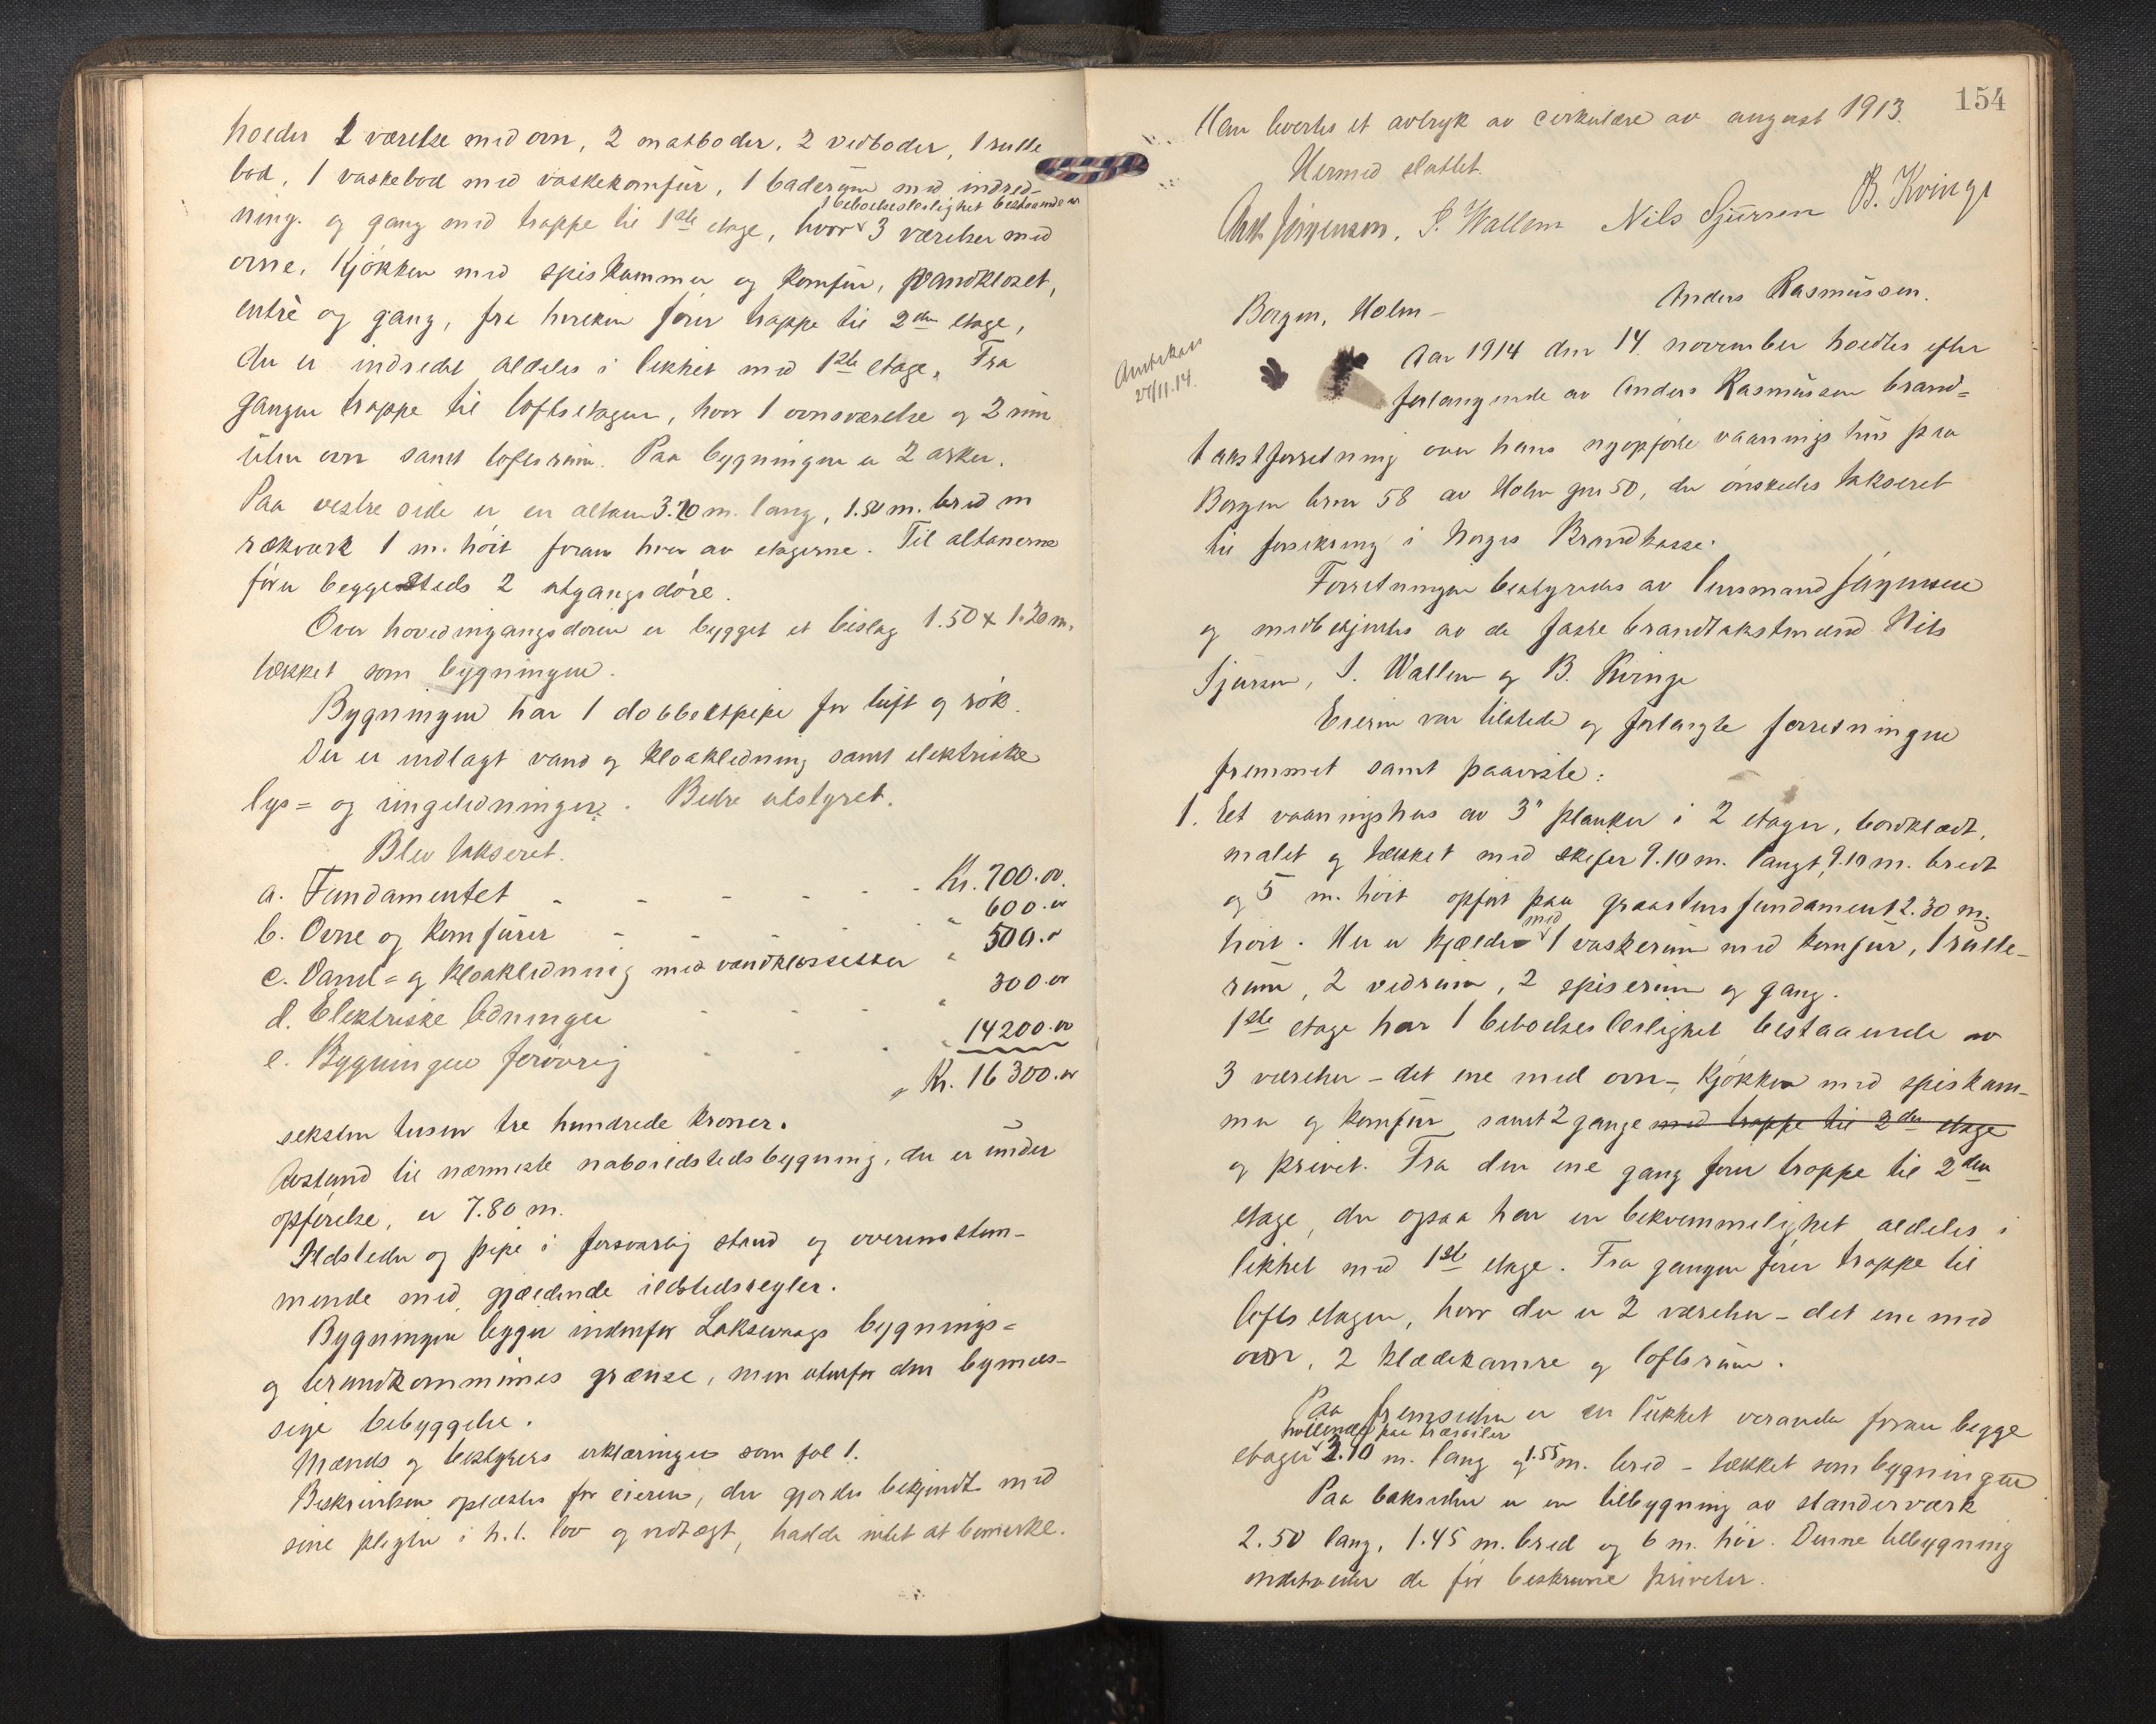 holder 1 værelse med ovn, 2 matboder, 2 vedboder, 1 rulle
bod, 1 vaskebod med vaskekomfür, 1 baderüm med indred-
1 beboelsesleilighet bestaaende av
ning. og gang med trappe til 1ste etage, hvor 3 værelser med
ovne, Kjökken med spiskammer og komfür, vandklozet,
entrè og gang, fra hvilken förer trappe til 2den etage,
der er indredet aldeles i likhet med 1ste etage. Fra
gangen trappe til loftsetagen, hvor 1 ovnsværelse og 2 rüm
üten ovn samt loftsrüm. Paa bygningen er 2 arker.
Paa vestre side er en altan 3.20 m. lang, 1.50 m. bred m
rækverk 1 m. höit foran hver av etagerne. Til altanerne
förer beggesteds 2 utgangsdöre.
Over hovedingangsdören er bygget et bislag 1.50 x 1.20 m.
tækket som bygningen.
Bygningen har 1 dobbeltpipe for lüft og rök.
Der er indlagt vand og kloakledning samt elektriske
lys= og ringeledninger. Bedre utstyret.
Blev takseret.
a. Fundamentet - - - - - Kr. 700.00.
b. Ovne og komfürer - - - - " 600.00
c. Vand= og kloakledning med vandklossetter " 500.00
d. Elektriske ledninger - - - " 300.00
e. Bygningen forövrig - - - " 14200.00
Kr. 16300.00
seksten tusen tre hundrede kroner.
Avstand til nærmeste naboildstedsbygning, der er ünder
opförelse, er 7.80 m.
Ildsteder og pipe i forsvarlig stand og overensstem-
mende med gjældende ildstedsregler.
Bygningen ligger indenfor Laksevaags bygnings=
og brandkommünes grænse, men utenfor den bymæs-
sige bebyggelse.
Mænds og bestyrers erklæringer som fol 1.
Beskrivelsen oplæstes for eieren, der gjordes bekjendt med
sine pligter i h.t. lov og vedtægt, hadde intet at bemerke.
154
Han levertes et avtryk av cirkulære av august 1913.
Hermed sluttet.
Ant. Jörgensen, S. Wallem Nils Sjürsen B. Kvinge
Borgen, Holm - Anders Rasmüssen.
Amtskas
27/11.14.
Aar 1914 den 14. november holdtes efter
forlangende av Anders Rasmüssen brand=
takstforretning over hans nyopförte vaaningshüs paa
Borgen brn 58 av Holm gnr 50, der önskedes takseret
til forsikring i Norges Brandkasse.
Forretningen bestyredes av lensmand Jörgensen
og medbetjentes av de faste brandtakstmænd Nils
Sjursen, S. Wallem og B. Kvinge
Eieren var tilstede og forlangte forretningen
fremmet samt paaviste:
1. Et vaaningshus av 3" planker i 2 etager, bordklædt,
malet og tækket med skifer 9.10 m. langt, 9.10 m. bredt
og 5 m. höit opfört paa graastens fundament 2.30 m.
med
höit. Her er kjælder 1 vaskerüm med komfür, 1 rulle-
rüm, 2 vedrüm, 2 spiserüm og gang.
1ste etage har 1 beboelses leilighet bestaaende av
3 værelser - det ene med ovn -, Kjökken med spiskam-
mer og komfür samt 2 gange med trappe til 2den etage
og privet. Fra den ene gang förer trappe til 2den
etage, der ogsaa har en bekvemmelighet aldeles i
likhet med 1ste etage. Fra gangen förer trappe til
lofts etagen, hvor der er 2 værelser - det ene med
ovn, 2 klædekamre og loftsrüm.
Paa fremsiden er en lükket veranda foran begge
hvilende paa træsöiler
etager 2.10 m. lang og 1.55 m. bred - tækket som bygningen
Paa baksiden er en tilbygning av standerværk
2.50 lang, 1.45 m. bred og 6 m. höi. Denne tilbygning
indeholder de för beskrevne priveter.